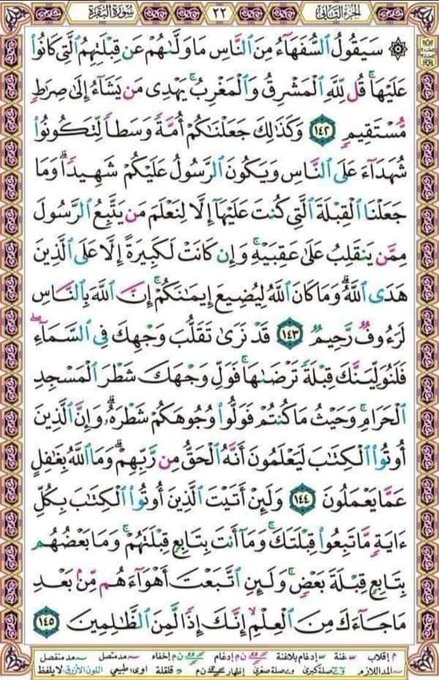 الجزء الثاني ٢٢ سورة البقرة
۞ سَيَقُولُ ٱلسُّفَهَآءُ مِنَ ٱلنَّاسِ مَا وَلَّىٰهُمْ عَن قِبْلَتِهِمُ ٱلَّتِى كَانُوا۟
عَلَيْهَا ۚ قُل لِّلَّهِ ٱلْمَشْرِقُ وَٱلْمَغْرِبُ ۚ يَهْدِى مَن يَشَآءُ إِلَىٰ صِرَٰطٍ
مُّسْتَقِيمٍ ١٤٢ وَكَذَٰلِكَ جَعَلْنَٰكُمْ أُمَّةً وَسَطًا لِّتَكُونُوا۟
شُهَدَآءَ عَلَى ٱلنَّاسِ وَيَكُونَ ٱلرَّسُولُ عَلَيْكُمْ شَهِيدًا ۗ وَمَا
جَعَلْنَا ٱلْقِبْلَةَ ٱلَّتِى كُنتَ عَلَيْهَآ إِلَّا لِنَعْلَمَ مَن يَتَّبِعُ ٱلرَّسُولَ
مِمَّن يَنقَلِبُ عَلَىٰ عَقِبَيْهِ ۚ وَإِن كَانَتْ لَكَبِيرَةً إِلَّا عَلَى ٱلَّذِينَ
هَدَى ٱللَّهُ ۗ وَمَا كَانَ ٱللَّهُ لِيُضِيعَ إِيمَٰنَكُمْ ۚ إِنَّ ٱللَّهَ بِٱلنَّاسِ
لَرَءُوفٌ رَّحِيمٌ ١٤٣ قَدْ نَرَىٰ تَقَلُّبَ وَجْهِكَ فِى ٱلسَّمَآءِ ۖ
فَلَنُوَلِّيَنَّكَ قِبْلَةً تَرْضَىٰهَا ۚ فَوَلِّ وَجْهَكَ شَطْرَ ٱلْمَسْجِدِ
ٱلْحَرَامِ ۚ وَحَيْثُ مَا كُنتُمْ فَوَلُّوا۟ وُجُوهَكُمْ شَطْرَهُۥ ۗ وَإِنَّ ٱلَّذِينَ
أُوتُوا۟ ٱلْكِتَٰبَ لَيَعْلَمُونَ أَنَّهُ ٱلْحَقُّ مِن رَّبِّهِمْ ۗ وَمَا ٱللَّهُ بِغَٰفِلٍ
عَمَّا يَعْمَلُونَ ١٤٤ وَلَئِنْ أَتَيْتَ ٱلَّذِينَ أُوتُوا۟ ٱلْكِتَٰبَ بِكُلِّ
ءَايَةٍ مَّا تَبِعُوا۟ قِبْلَتَكَ ۚ وَمَآ أَنتَ بِتَابِعٍ قِبْلَتَهُمْ ۚ وَمَا بَعْضُهُم
بِتَابِعٍ قِبْلَةَ بَعْضٍ ۚ وَلَئِنِ ٱتَّبَعْتَ أَهْوَآءَهُم مِّنۢ بَعْدِ
مَا جَآءَكَ مِنَ ٱلْعِلْمِ ۙ إِنَّكَ إِذًا لَّمِنَ ٱلظَّٰلِمِينَ ١٤٥
م إقلاب غنة إدغام بلاغنة ن م إدغام ن م إخفاء مد متصل مد منفصل
المد اللازم صلة كبرى صلة صغرى إظهار ن م قلقلة اوى: طبيعي اللون الأزرق: لا يلفظ